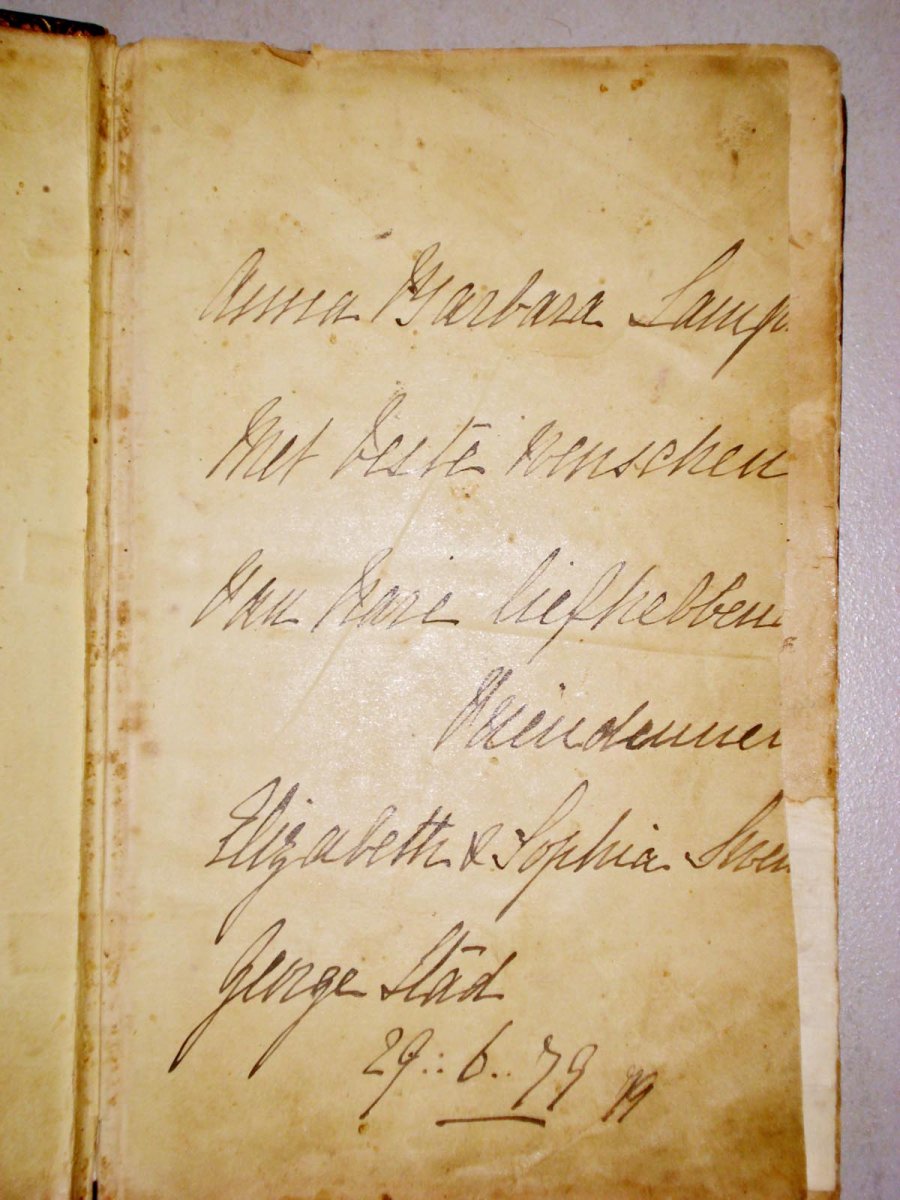 Anna Barbara Lamp
Met beste wenschen
Van Hare liefhebben
Vriendinnen
Elizabeth & Sophia
George Stad
29.. 6.. 79